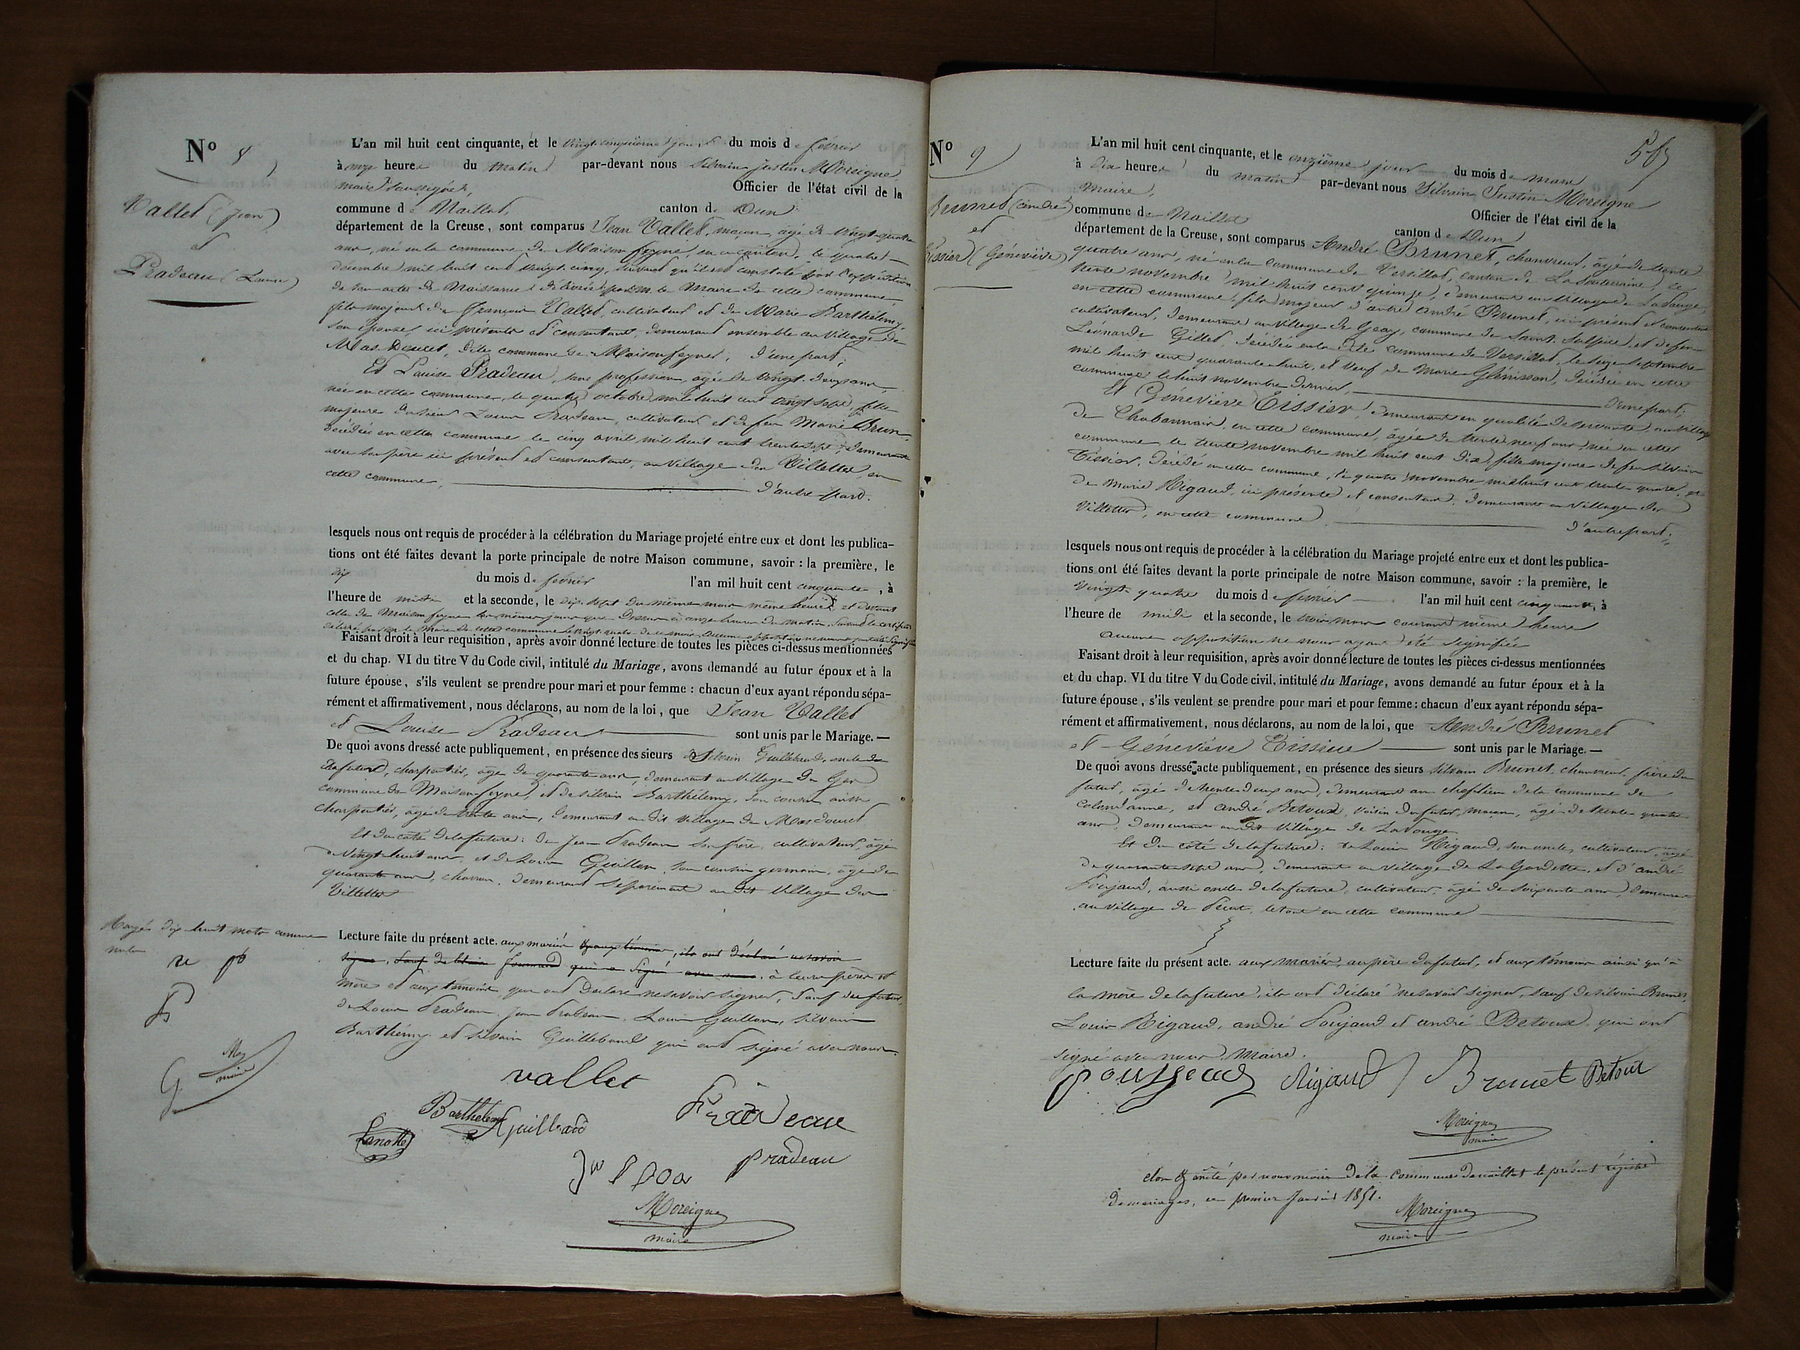 N° 8
Vallet (Jean)
et
Pradeau (Louise)
L'an mil huit cent cinquante, et le vingt cinquième jour du mois de février
à onze heures du matin par-devant nous Silvain Justin Moreigne
maire soussigné, Officier de l'état civil de la
commune de Naillat, canton de Dun
département de la Creuse, sont comparus Jean Vallet, maçon, âgé de vingt quatre
ans, né en la commune de Maisonfeyne, en ce canton, le quatre
décembre mil huit cent vingt cinq, suivant qu'il est constaté par l'expédition
de son acte de Naissance délivrée par M. le Maire de cette commune
fils majeur de François Vallet, cultivateur et de Marie Barthélemy
son épouse, ici présents et consentant, demeurant ensemble au village de
Mas Douret, dite commune de Maisonfeyne, d'une part;
Et Louise Pradeau, sans profession, âgée de vingt deux ans
née en cette commune, le quatre octobre mil huit cent vingt sept, fille
majeure de Louis Pradeau, cultivateur, et de feu Marie Brun,
décédée en cette commune le cinq avril mil huit cent trente sept, demeurant
avec son père ici présent et consentant, au village des Villettes, en
cette commune, d'autre part.
lesquels nous ont requis de procéder à la célébration du Mariage projeté entre eux et dont les publica-
tions ont été faites devant la porte principale de notre Maison commune, savoir : la première, le
dix du mois de février l'an mil huit cent cinquante, à
l'heure de midi et la seconde, le dix sept du même mois même heure, et devant
celle de Maison feyne les mêmes jours que dessus à onze heures du matin, suivant le certificat
délivré par M. le Maire de cette commune le vingt quatre de ce mois. Aucune opposition ne nous ayant été signifiée
Faisant droit à leur requisition, après avoir donné lecture de toutes les pièces ci-dessus mentionnées
et du chap. VI du titre V du Code civil, intitulé du Mariage, avons demandé au futur époux et à la
future épouse, s'ils veulent se prendre pour mari et pour femme : chacun d'eux ayant répondu sépa-
rément et affirmativement, nous déclarons, au nom de la loi, que Jean Vallet
et Louise Pradeau sont unis par le Mariage. —
De quoi avons dressé acte publiquement, en présence des sieurs Silvain Guillebaud, oncle du
futur, charpentier, âgé de quarante ans, demeurant au village du
commune de Maisonfeyne, et de Silvain Barthélemy, son cousin, aussi
charpentier, âgé de trente ans, demeurant au dit village de Mas Douret
Et du côté de la future: de Jean Pradeau son frère, cultivateur, âgé
de vingt huit ans, et de Louis Guillon, son cousin germain, âgé de
quarante ans, charron, demeurant séparément au dit village des
Villettes
Rayés dix huit mots comme
nuls
Lecture faite du présent acte. aux mariés et aux témoins, ils ont déclaré ne savoir
signer, sauf de qui a signé avec nous, à leurs pères et
mère et aux témoins, qui ont déclaré ne savoir signer, sauf du futur,
de Louis Pradeau, jean Pradeau, Louis Guillon, Silvain
Barthélemy et Silvain Guillebaud qui ont signé avec nous.
Mor
maire
vallet
Barthelemy Guillbaud Pradeau
pradeau
Moreigne
maire
567
N° 9
Brunet (André)
et
Tissier (Géneviève)
L'an mil huit cent cinquante, et le onzième jour du mois de mars
à dix heures du matin par-devant nous Silvain Justin Moreigne
maire, Officier de l'état civil de la
commune de Naillat canton de Dun
département de la Creuse, sont comparus André Brunet, chanvreur, âgé de trente
quatre ans, né en la commune de Versillat, canton de La Souterraine, le
trente novembre mil huit cent quinze, demeurant au village de La Vouge,
en cette commune, fils majeur d'autre André Brunet, ici présent et consentant
cultivateur, demeurant au village de Geay, commune de Saint Sulpice, et de feu
Léonarde Gillet, décédée en la dite commune de Versillat, le seize septembre
mil huit cent quarante huit, et veuf de Marie Glénisson, décédée en cette
commune le huit novembre dernier, d'une part;
Et Géneviève Tissier, demeurant en qualité de servante, au village
de Chabannais, en cette commune, âgée de trente neuf ans, née en cette
commune, le trente novembre mil huit cent dix, fille majeure de feu Silvain
Tissier, décédé en cette commune, le quatre novembre mil huit cent trente quatre, et
de Marie Rigaud, ici présente et consentant, demeurant au village des
Villettes, en cette commune d'autre part;
lesquels nous ont requis de procéder à la célébration du Mariage projeté entre eux et dont les publica-
tions ont été faites devant la porte principale de notre Maison commune, savoir : la première, le
vingt quatre du mois de février l'an mil huit cent cinquante, à
l'heure de midi et la seconde, le trois mars courant même heure
aucune opposition ne nous ayant été signifiée
Faisant droit à leur requisition, après avoir donné lecture de toutes les pièces ci-dessus mentionnées
et du chap. VI du titre V du Code civil, intitulé du Mariage, avons demandé au futur époux et à la
future épouse, s'ils veulent se prendre pour mari et pour femme : chacun d'eux ayant répondu sépa-
rément et affirmativement, nous déclarons, au nom de la loi, que André Brunet
et Géneviève Tissier sont unis par le Mariage. —
De quoi avons dressé acte publiquement, en présence des sieurs Silvain Brunet, chanvreur, frère du
futur, âgé de trente deux ans, demeurant au chef lieu de la commune de
Colondanne, et andré Betoux, voisin du futur, maçon, âgé de trente quatre
ans, demeurant au dit village de La Vouge
Et du côté de la future: de Louis Rigaud, son oncle, cultivateur, âgé
de quarante sept ans, demeurant au village de La Gardette, et d'andré
Poujaud, aussi oncle de la future, cultivateur, âgé de soixante ans, demeurant
au village de Peut, le tout en cette commune
Lecture faite du présent acte. aux mariés, au père du futur, et aux témoins ainsi qu'à
la mère de la future, ils ont déclaré ne savoir signer, sauf de Silvain Brunet,
Louis Rigaud, andré Poujaud et andré Betoux, qui ont
signé avec nous, Maire.
Rigaud Brunet Betoux
Moreigne
maire
Clos & arrêté par nous maire de la commune de naillat le présent régistre
de mariages, ce premier Janvier 1851.
Moreigne
maire